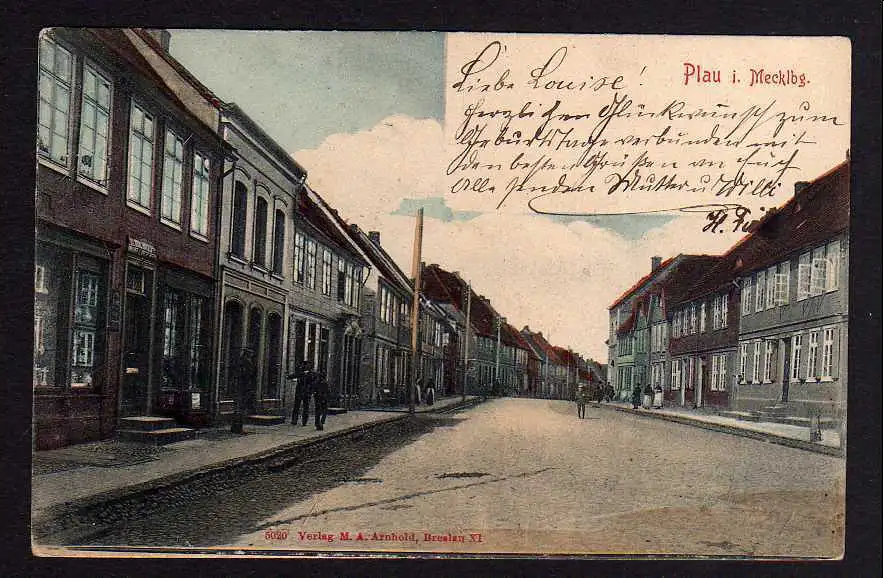 Plau i. Mecklbg.
Liebe Louise!
Herzlichen Glückwunsch zum
Geburtstage verbunden mit
den besten Grüßen an Euch
Alle senden Mutter u Willi
H.
5020 Verlag M. A. Arnhold, Breslau XI